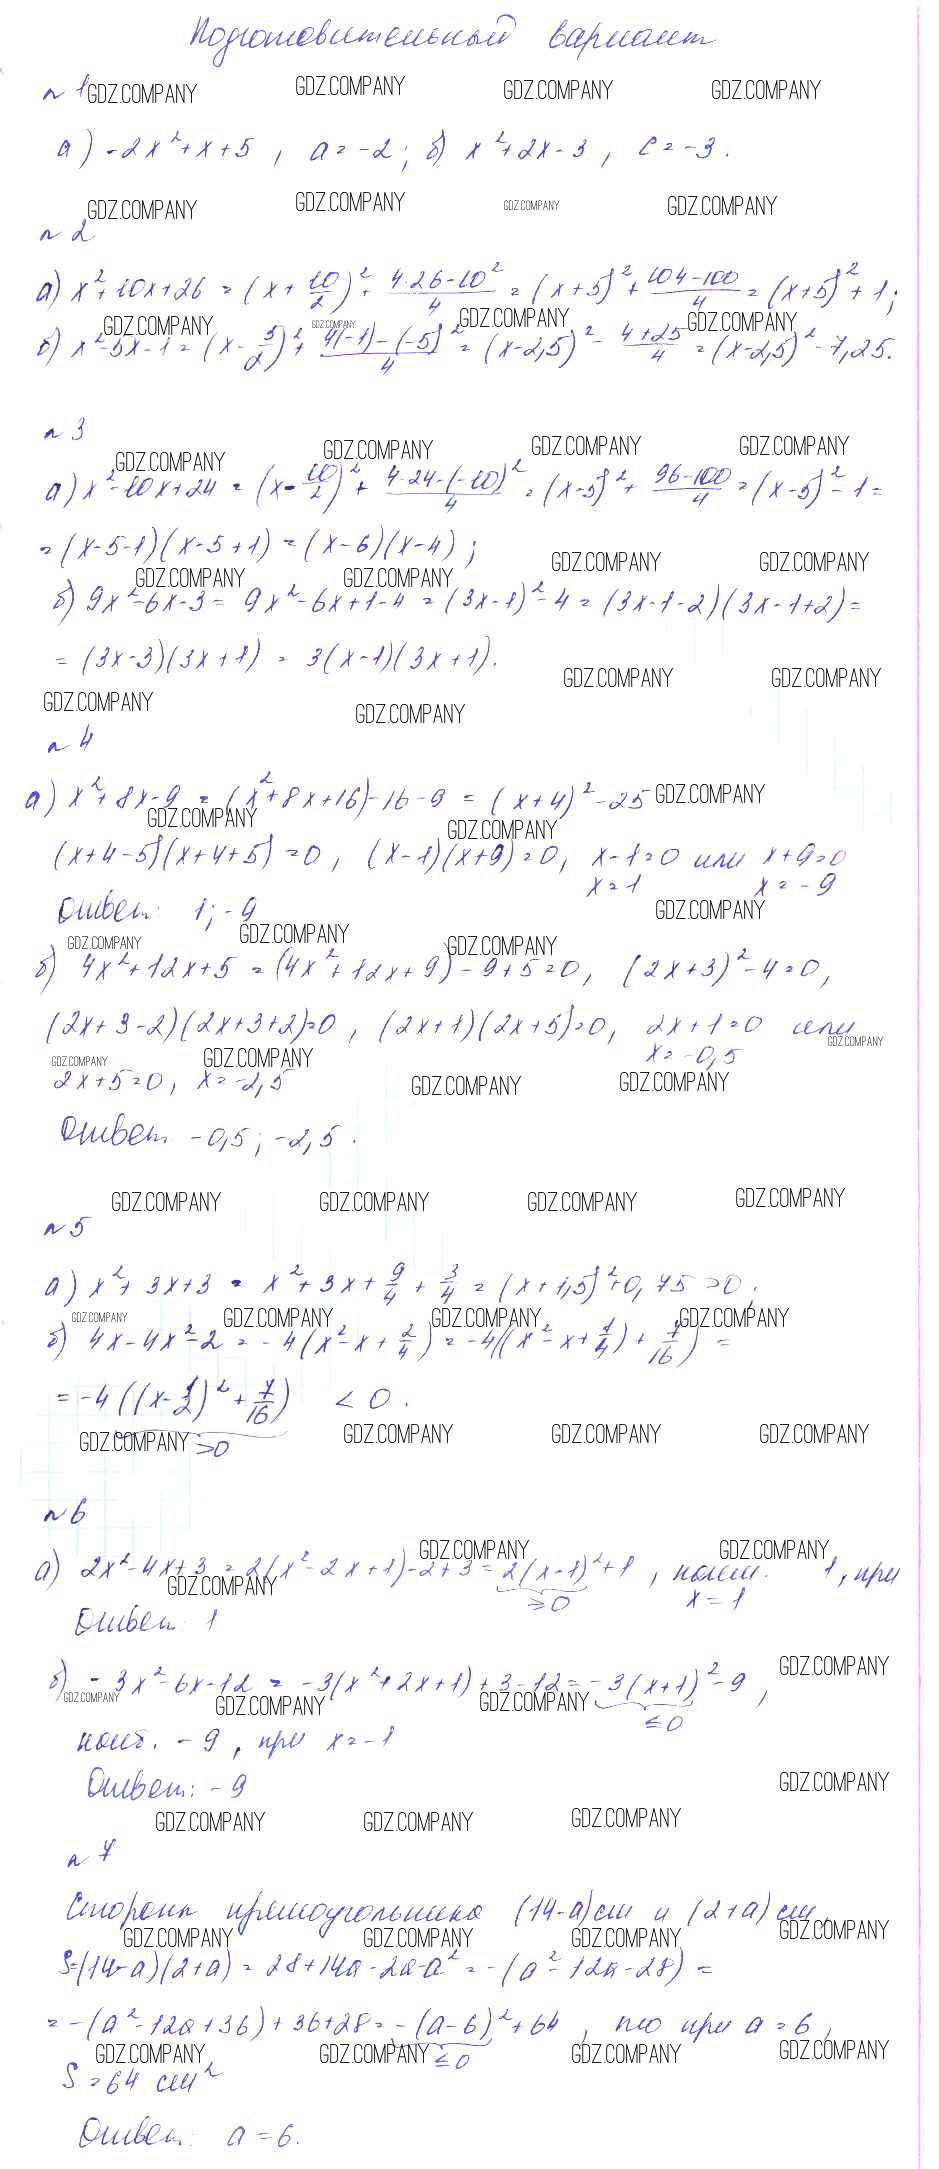 Подготовительный вариант
GDZ.COMPANY GDZ.COMPANY GDZ.COMPANY GDZ.COMPANY
n 1
а) -2x²+x+5 , a=-2; б) x²+2x-3 , c=-3.
GDZ.COMPANY GDZ.COMPANY GDZ.COMPANY GDZ.COMPANY
n 2
а) x²+10x+26 = (x+10/2)²+ (4·26-10²)/4 = (x+5)²+ (104-100)/4 = (x+5)²+1;
GDZ.COMPANY GDZ.COMPANY GDZ.COMPANY GDZ.COMPANY
б) x²-5x-1 = (x-5/2)²+ (4(-1)-(-5)²)/4 = (x-2,5)²- (4+25)/4 = (x-2,5)²-7,25.
n 3
GDZ.COMPANY GDZ.COMPANY GDZ.COMPANY GDZ.COMPANY
а) x²-10x+24 = (x-10/2)²+ (4·24-(-10)²)/4 = (x-5)²+ (96-100)/4 = (x-5)²-1=
=(x-5-1)(x-5+1) =(x-6)(x-4) ;
GDZ.COMPANY GDZ.COMPANY GDZ.COMPANY GDZ.COMPANY
б) 9x²-6x-3 = 9x²-6x+1-4 =(3x-1)²-4=(3x-1-2)(3x-1+2)=
= (3x-3)(3x+1) = 3(x-1)(3x+1).
GDZ.COMPANY GDZ.COMPANY GDZ.COMPANY GDZ.COMPANY
n 4
а) x²+8x-9 = (x²+8x+16)-16-9 = (x+4)²-25
GDZ.COMPANY GDZ.COMPANY GDZ.COMPANY
(x+4-5)(x+4+5)=0, (x-1)(x+9)=0, x-1=0 или x+9=0
x=1 x=-9
Ответ: 1; -9
GDZ.COMPANY GDZ.COMPANY GDZ.COMPANY GDZ.COMPANY
б) 4x²+12x+5 =(4x²+12x+9)-9+5=0, (2x+3)²-4=0,
(2x+3-2)(2x+3+2)=0, (2x+1)(2x+5)=0, 2x+1=0 или
x=-0,5
GDZ.COMPANY GDZ.COMPANY GDZ.COMPANY GDZ.COMPANY GDZ.COMPANY
2x+5=0, x=-2,5
Ответ -0,5; -2,5.
GDZ.COMPANY GDZ.COMPANY GDZ.COMPANY GDZ.COMPANY
n 5
а) x²+3x+3 = x²+3x+9/4+3/4=(x+1,5)²+0,75>0;
GDZ.COMPANY GDZ.COMPANY GDZ.COMPANY GDZ.COMPANY
б) 4x-4x²-2 = -4(x²-x+2/4)=-4((x²-x+1/4)+7/16) =
= -4((x-1/2)²+7/16) < 0.
>0
GDZ.COMPANY GDZ.COMPANY GDZ.COMPANY GDZ.COMPANY
n 6
GDZ.COMPANY GDZ.COMPANY GDZ.COMPANY
а) 2x²-4x+3 = 2(x²-2x+1)-2+3=2(x-1)²+1 , наим. 1, при
≥0 x=1
Ответ: 1
б) -3x²-6x-12 = -3(x²+2x+1)+3-12=-3(x+1)²-9 ,
GDZ.COMPANY GDZ.COMPANY GDZ.COMPANY GDZ.COMPANY
≤0
наиб. -9, при x=-1
Ответ: -9
GDZ.COMPANY
GDZ.COMPANY GDZ.COMPANY GDZ.COMPANY
n 7
Стороны прямоугольника (14-a)см и (2+a)см,
GDZ.COMPANY GDZ.COMPANY GDZ.COMPANY GDZ.COMPANY
S=(14-a)(2+a) = 28+14a-2a-a² = -(a²-12a-28) =
= -(a²-12a+36)+36+28=-(a-6)²+64 , то при a=6,
≤0
GDZ.COMPANY GDZ.COMPANY GDZ.COMPANY GDZ.COMPANY
S=64 см²
Ответ: a=6.